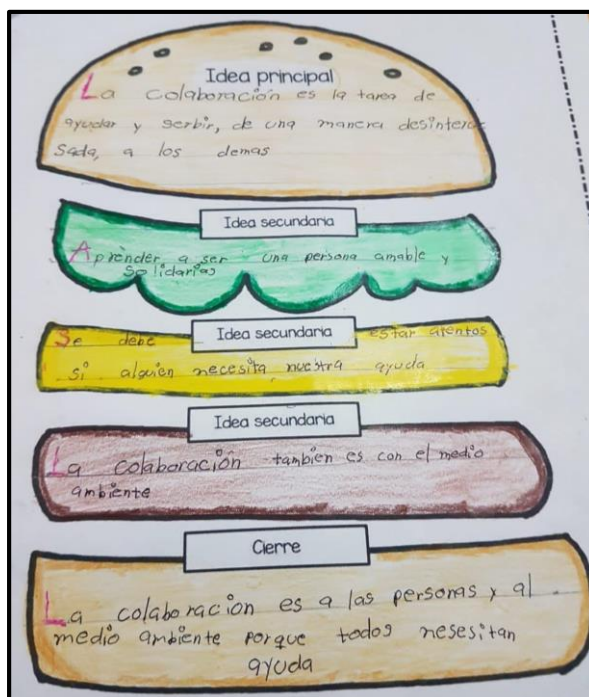 Idea principal
La colaboración es la tarea de
ayudar y serbir, de una manera desintere
sada, a los demas
Idea secundaria
Aprender a ser una persona amable y
solidarias
Idea secundaria
Se debe estar atentos
si alguien necesita nuestra ayuda
Idea secundaria
La colaboración tambien es con el medio
ambiente
Cierre
La colaboración es a las personas y al
medio ambiente porque todos nesesitan
ayuda